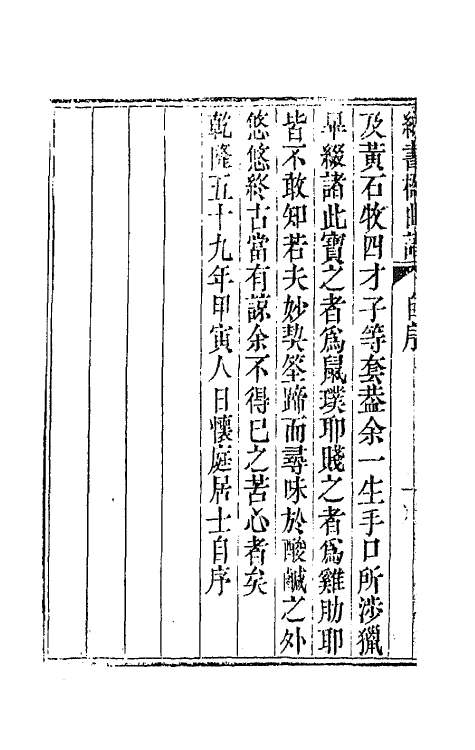 納書楹曲譜 自序
及黃石牧四才子等套葢余一生手口所涉獵
畢綴諸此寶之者爲鼠璞耶賤之者爲雞肋耶
皆不敢知若夫妙契筌蹄而尋味於酸鹹之外
悠悠終古當有諒余不得已之苦心者矣
乾隆五十九年甲寅人日懷庭居士自序